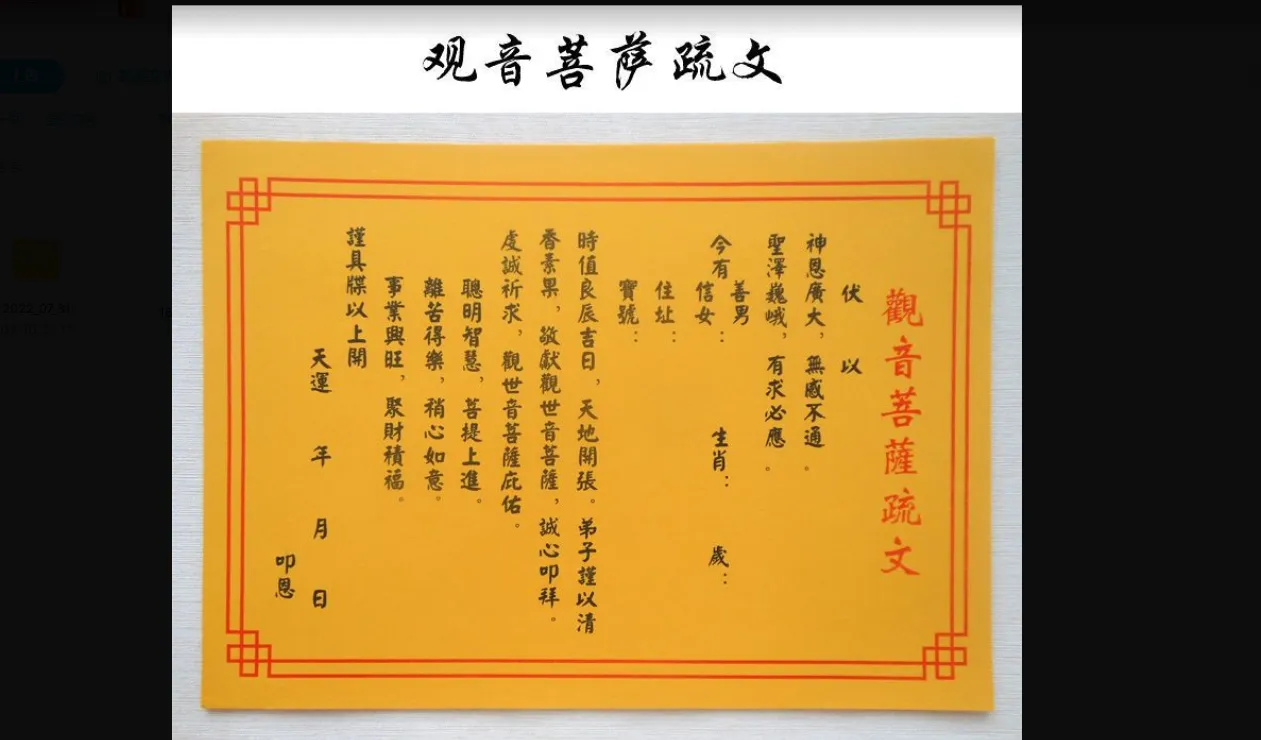 观音菩萨疏文
觀音菩薩疏文
伏以
神恩廣大，無感不通。
聖澤巍峨，有求必應。
今有善男信女：生肖：歲：
住址：
寶號：
時值良辰吉日，天地開張。弟子謹以清
香素果，敬獻觀世音菩薩，誠心叩拜。
虔誠祈求，觀世音菩薩庇佑。
聰明智慧，菩提上進。
離苦得樂，稍心如意。
事業興旺，聚財積福。
謹具牒以上開
天運年月日
叩恩